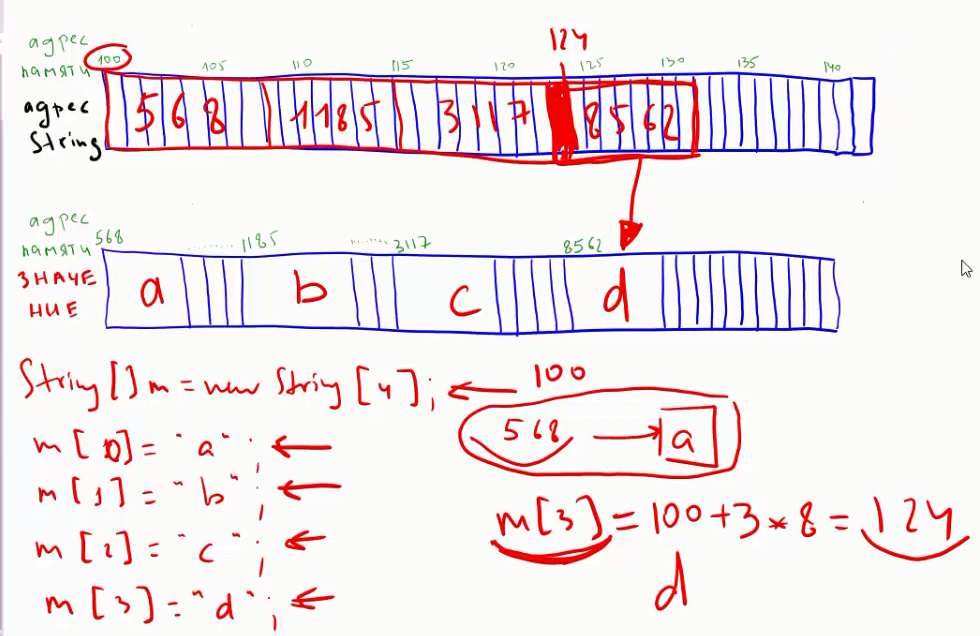 124
адрес
памяти 100 105 110 115 120 125 130 135 140
адрес
String
568 1185 3117 8562
адрес
памяти 568 ........ 1185 ........ 3117 8562
ЗНАЧЕ
НИЕ
a b c d
String [] m = new String [4]; ← 100
568 → a
m [0] = "a"; ←
m [1] = "b"; ←
m[3] = 100+3*8 = 124
m [2] = "c"; ←
d
m [3] = "d"; ←